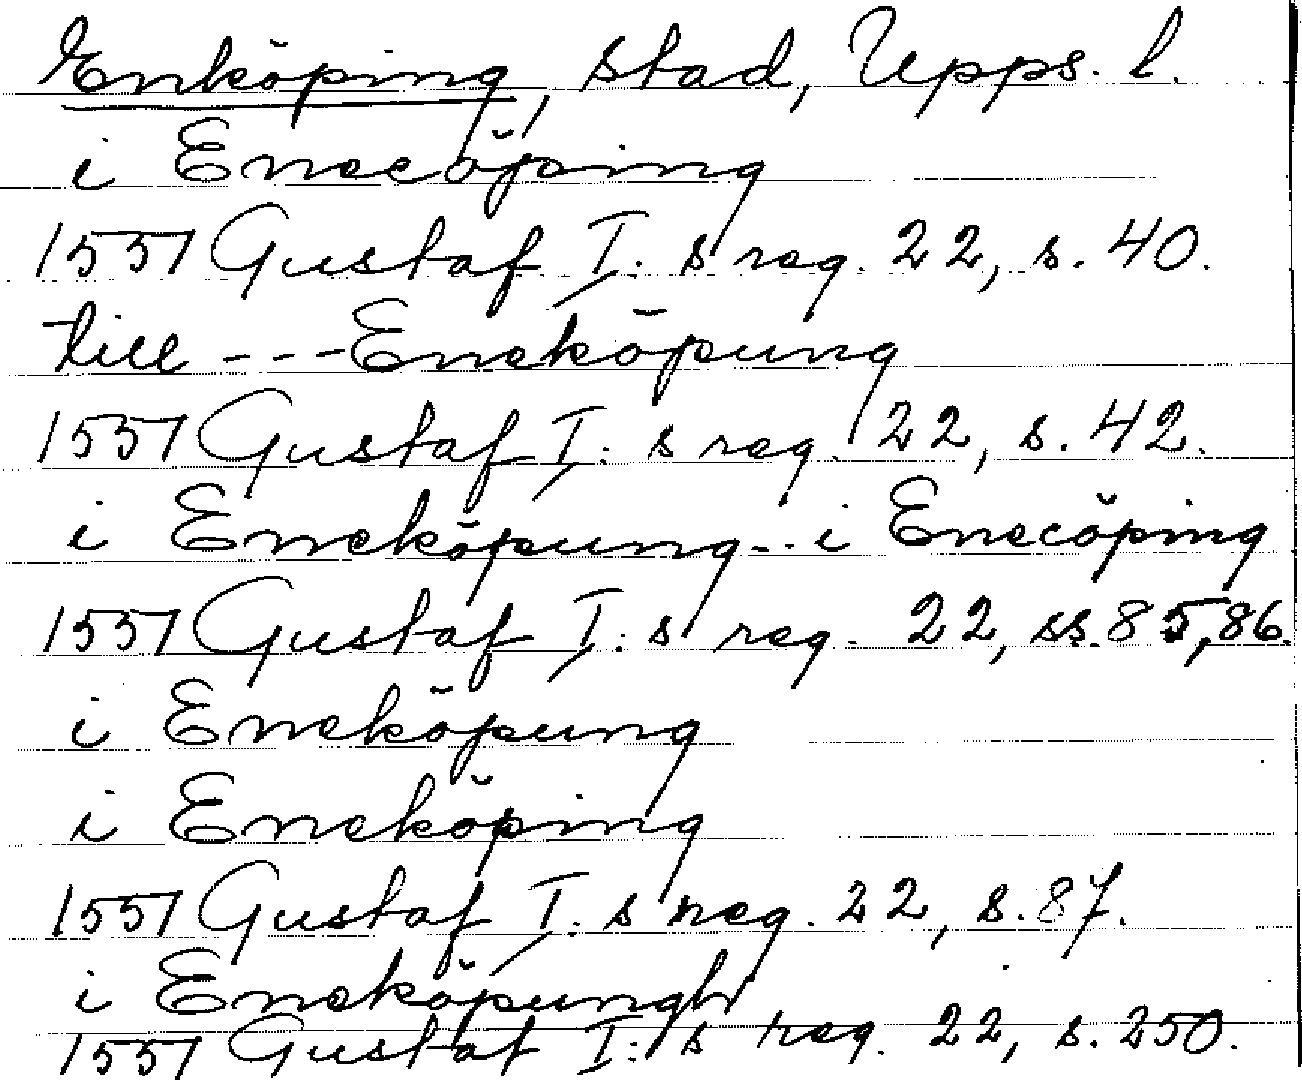 Enköping, stad, Upps. l.
i Enecöping
1551 Gustaf I:s reg. 22, s. 40.
till ---Eneköpung
1551 Gustaf I:s reg. 22, s. 42.
i Eneköpung--i Enecöping
1551 Gustaf I:s reg. 22, ss. 85,86.
i Eneköpung
i Eneköping
1551 Gustaf I:s reg. 22, s. 87.
i Eneköpungh
1551 Gustaf I:s reg. 22, s. 250.